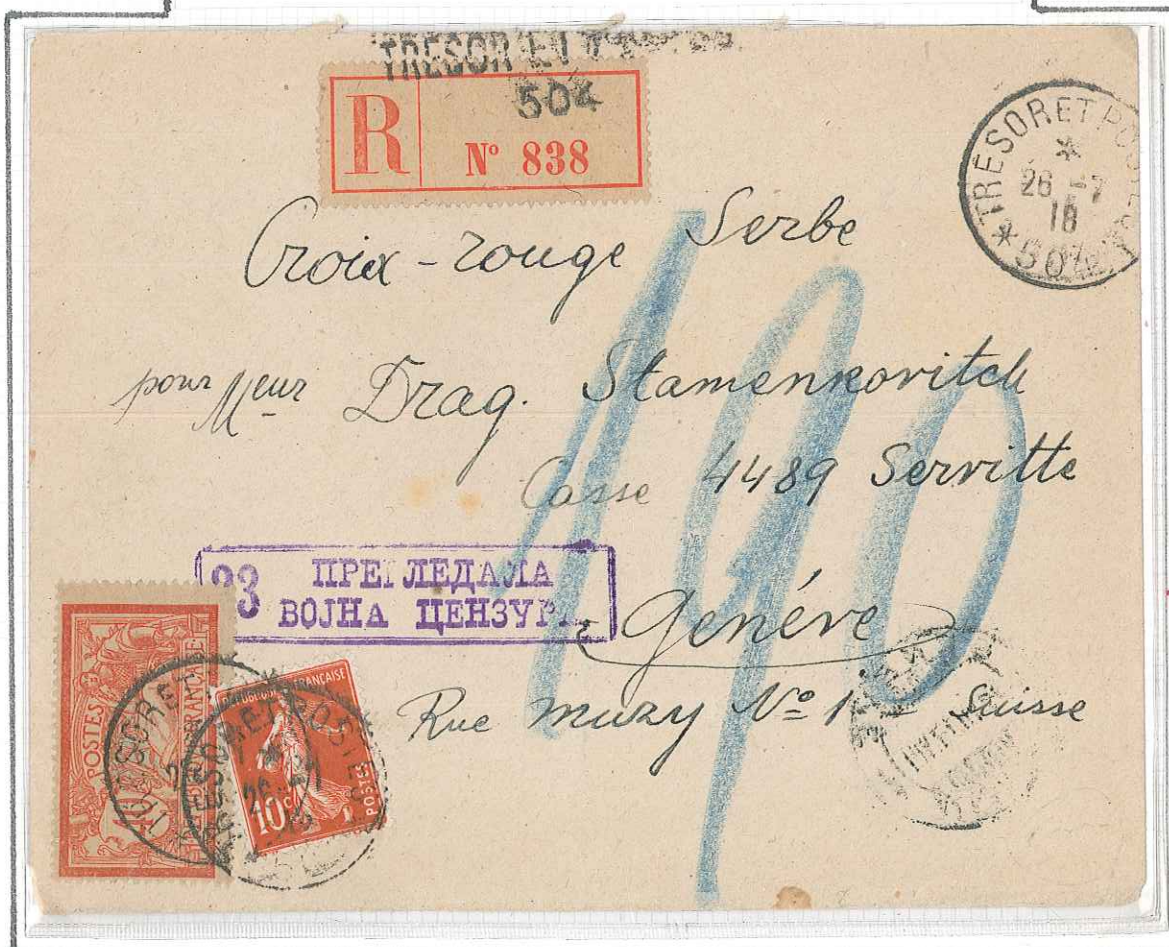 TRESOR ET
504
R
N° 838
* TRESOR ET POSTES *
*
26 -7
16
504
Croix-rouge Serbe
pour Meur Drag. Stamenkovitch
Casse 4489 Servitte
190
93 ПРЕГЛЕДАЛА
ВОЈНА ЦЕНЗУРА
Genéve
Rue muzy No 1 Suisse
POSTES
40
REPUBLIQUE FRANÇAISE
10 c
POSTES
TRESOR ET
TRESOR ET POSTES
26 -7